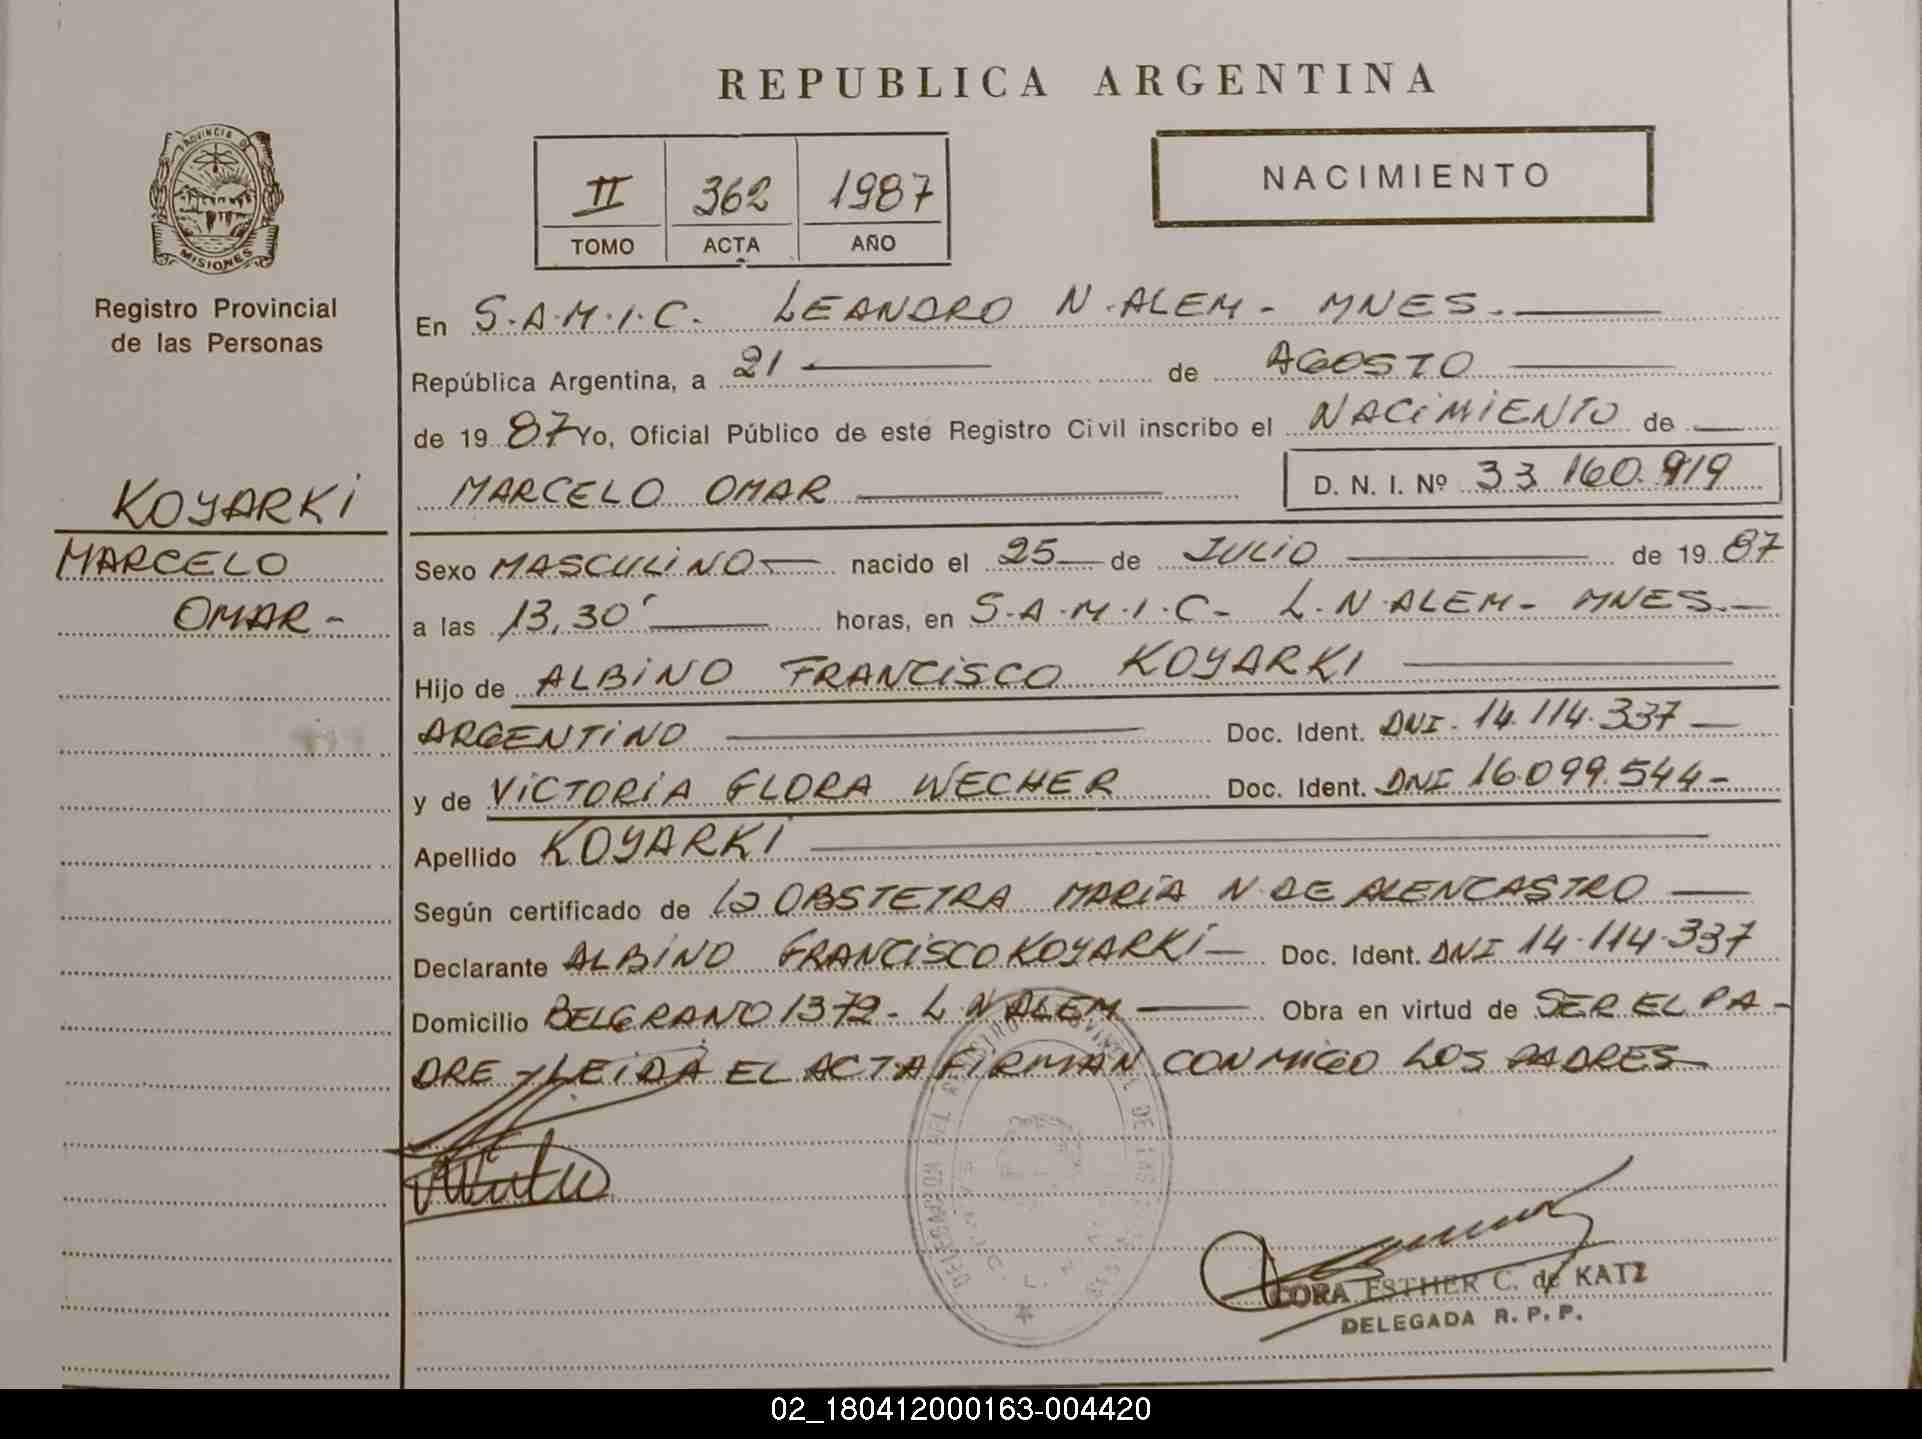 REPUBLICA ARGENTINA
PROVINCIA DE
MISIONES
Registro Provincial
de las Personas
II 362 1987
TOMO ACTA AÑO
NACIMIENTO
En S.A.M.I.C. LEANDRO N. ALEM - MNES.
República Argentina, a 21 de AGOSTO
de 19 87 Yo, Oficial Público de este Registro Civil inscribo el NACIMIENTO de
MARCELO OMAR D. N. I. Nº 33 160.919
KOYARKI
MARCELO
OMAR -
Sexo MASCULINO nacido el 25 de JULIO de 19 87
a las 13,30' horas, en S.A.M.I.C- L.N.ALEM- MNES.-
Hijo de ALBINO FRANCISCO KOYARKI
ARGENTINO Doc. Ident. DNI. 14.114.337
y de VICTORIA FLORA WECHER Doc. Ident. DNI 16.099.544-
Apellido KOYARKI
Según certificado de la OBSTETRA MARIA N. DE ALENCASTRO
Declarante ALBINO FRANCISCO KOYARKI Doc. Ident. DNI 14.114.337
Domicilio BELGRANO 1372- L N ALEM Obra en virtud de SER EL PA-
DRE Y LEIDA EL ACTA FIRMAN CONMIGO LOS PADRES
CORA ESTHER C. de KATZ
DELEGADA R. P. P.
02_180412000163-004420